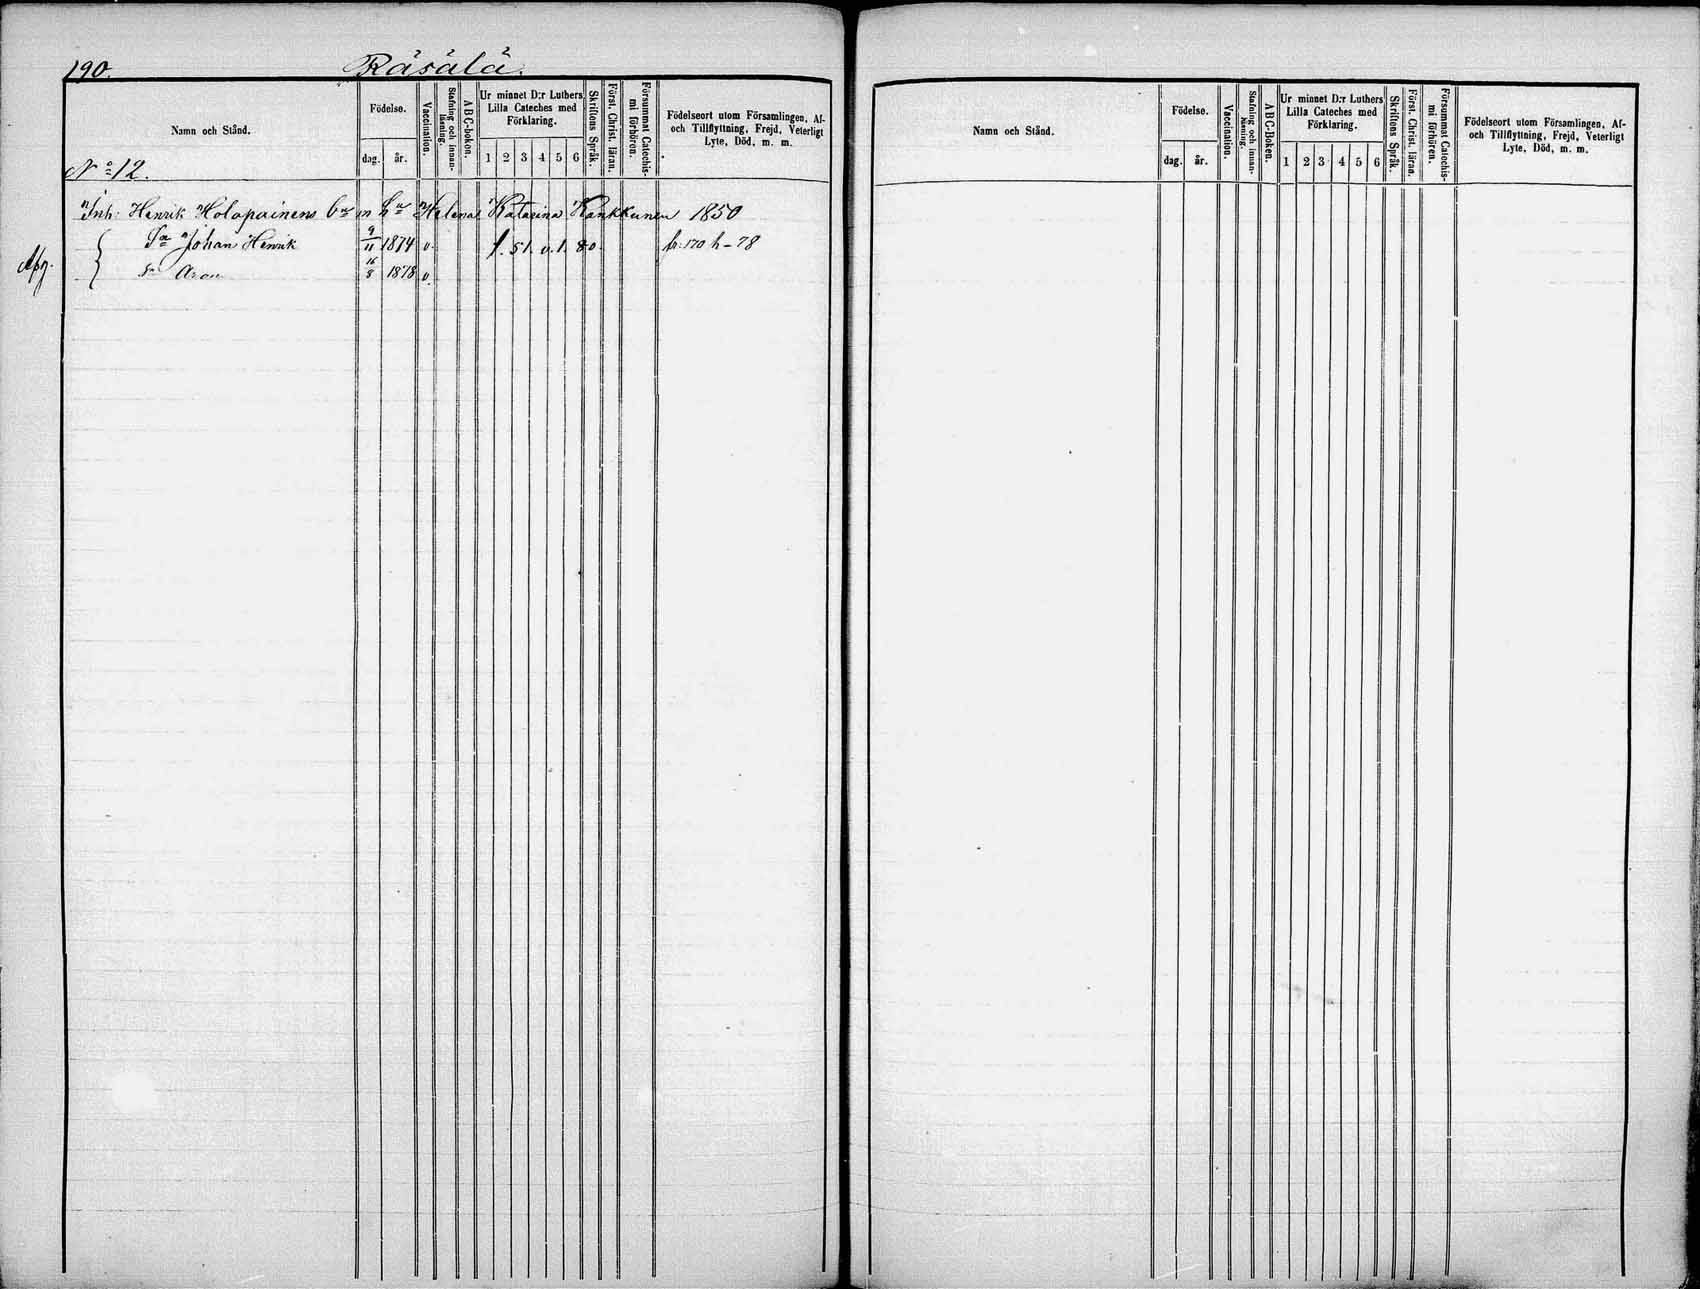 190. Räsälä.
Namn och Stånd.
Födelse.
dag. år.
Vaccination.
Stafning och innanläsning.
ABC-bokon.
Ur minnet D:r Luthers
Lilla Cateches med
Förklaring.
1 2 3 4 5 6
Skriftens Språk.
Först. Christ. läran.
Försummat Catechismi förhören.
Födelseort utom Församlingen, Af-
och Tillflyttning, Frejd, Veterligt
Lyte, Död, m. m.
No 12.
Inh: Henrik Holopainens bn m hu Helena Katarina Kankkunen 1850
Sn Johan Henrik 9/11 1874 v. f. 51. v. 1. 80. fr: 170 h-78
Sn Aron 16/8 1878 v.
Namn och Stånd.
Födelse.
dag. år.
Vaccination.
Stafning och innanläsning.
ABC-Boken.
Ur minnet D:r Luthers
Lilla Cateches med
Förklaring.
1 2 3 4 5 6
Skriftens Språk.
Först. Christ. läran.
Försummat Catechismi förhören.
Födelseort utom Församlingen, Af-
och Tillflyttning, Frejd, Veterligt
Lyte, Död, m. m.